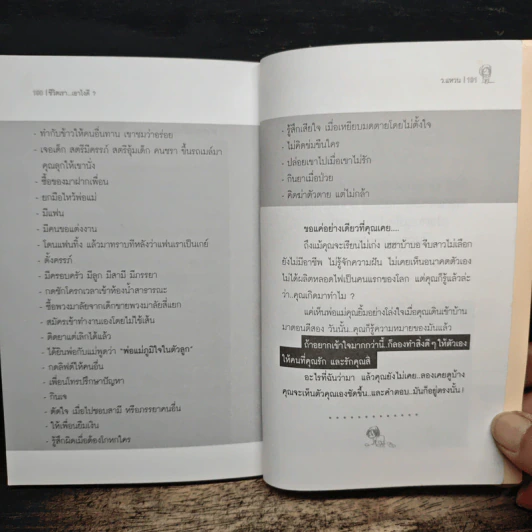 190 | ชีวิตเรา...เอาไงดี ?
- ทำกับข้าวให้คนอื่นทาน เขาชมว่าอร่อย
- เจอเด็ก สตรีมีครรภ์ สตรีอุ้มเด็ก คนชรา ขึ้นรถเมล์มา
คุณลุกให้เขานั่ง
- ซื้อของมาฝากเพื่อน
- ยกมือไหว้พ่อแม่
- มีแฟน
- มีคนขอแต่งงาน
- โดนแฟนทิ้ง แล้วมาทราบทีหลังว่าแฟนเราเป็นเกย์
- ตั้งครรภ์
- มีครอบครัว มีลูก มีสามี มีภรรยา
- กดชักโครกเวลาเข้าห้องน้ำสาธารณะ
- ซื้อพวงมาลัยจากเด็กขายพวงมาลัยสี่แยก
- สมัครเข้าทำงานเองโดยไม่ใช้เส้น
- ติดยาแต่เลิกได้แล้ว
- ได้ยินพ่อกับแม่พูดว่า "พ่อแม่ภูมิใจในตัวลูก"
- กดลิฟต์ให้คนอื่น
- เพื่อนโทรปรึกษาปัญหา
- กินเจ
- ตัดใจ เมื่อไปชอบสามี หรือภรรยาคนอื่น
- ให้เพื่อนยืมเงิน
- รู้สึกผิดเมื่อต้องโกหกใคร
ว.แหวน | 191
- รู้สึกเสียใจ เมื่อเหยียบมดตายโดยไม่ตั้งใจ
- ไม่คิดข่มขืนใคร
- ปล่อยเขาไปเมื่อเขาไม่รัก
- กินยาเมื่อป่วย
- คิดฆ่าตัวตาย แต่ไม่กล้า
ขอแค่อย่างเดียวที่คุณเคย....
ถึงแม้คุณจะเรียนไม่เก่ง เฮฮาบ้าบอ จีบสาวไม่เลือก
ยังไม่มีอาชีพ ไม่รู้จักความฝัน ไม่เคยเห็นอนาคตตัวเอง
ไม่ได้ผลิตหลอดไฟเป็นคนแรกของโลก แต่คุณก็รู้แล้วล่ะ
ว่า..คุณเกิดมาทำไม ?
แค่เห็นพ่อแม่คุณยิ้มอย่างโล่งใจเมื่อคุณเดินเข้าบ้าน
มาตอนตีสอง วันนั้น..คุณก็รู้ความหมายของมันแล้ว
ถ้าอยากเข้าใจมากกว่านี้..ก็ลองทำสิ่งดีๆ ให้ตัวเอง
ให้คนที่คุณรัก และรักคุณสิ
อะไรที่ฉันว่ามา แล้วคุณยังไม่เคย..ลองเคยดูบ้าง
คุณจะเห็นตัวคุณเองชัดขึ้น..และคำตอบ..มันก็อยู่ตรงนั้น !